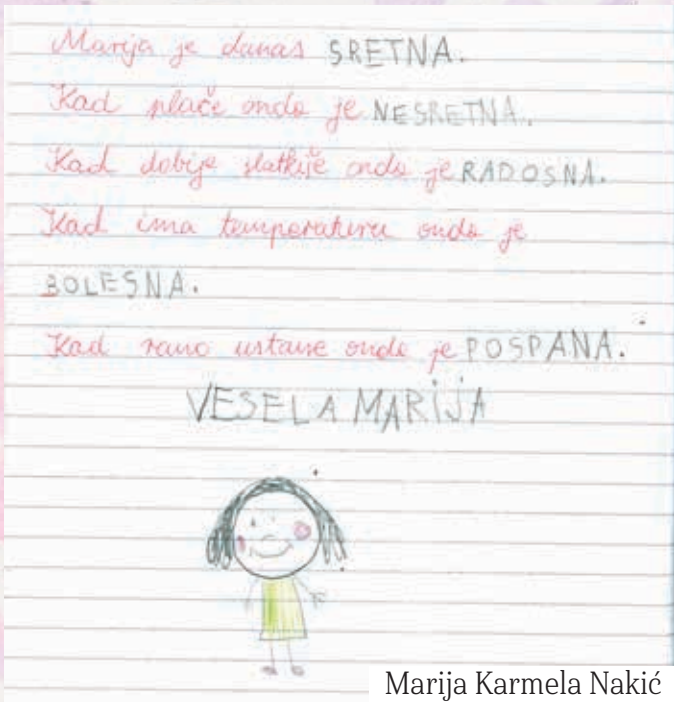 Marija je danas SRETNA.
Kad plače onda je NESRETNA.
Kad dobije slatkiše onda je RADOSNA.
Kad ima temperaturu onda je
BOLESNA.
Kad rano ustane onda je POSPANA.
VESELA MARIJA
Marija Karmela Nakić